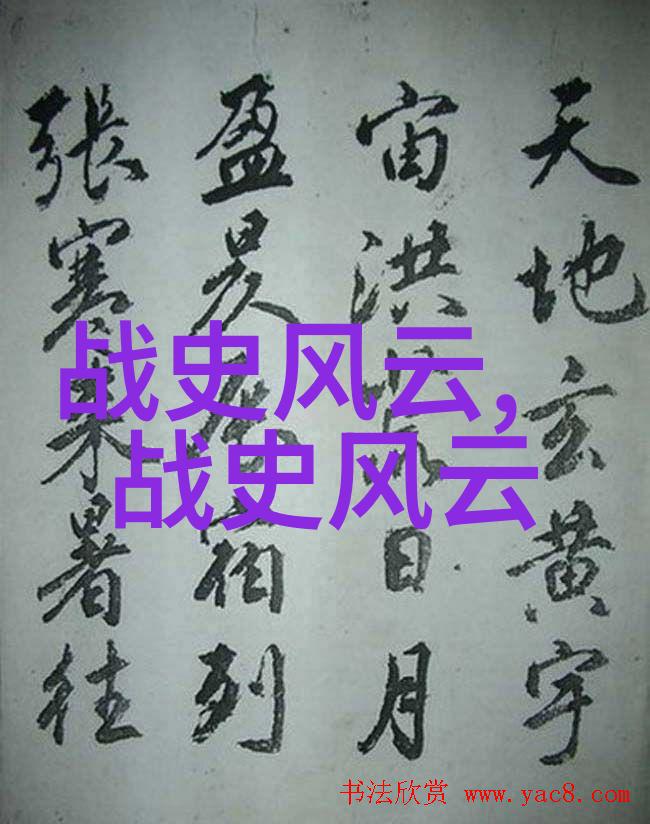 天地玄黄宇
宙洪荒日月
盈昃辰宿列
張寒来暑往
战史风云,
战史风云
书法欣赏 www.yac8.com